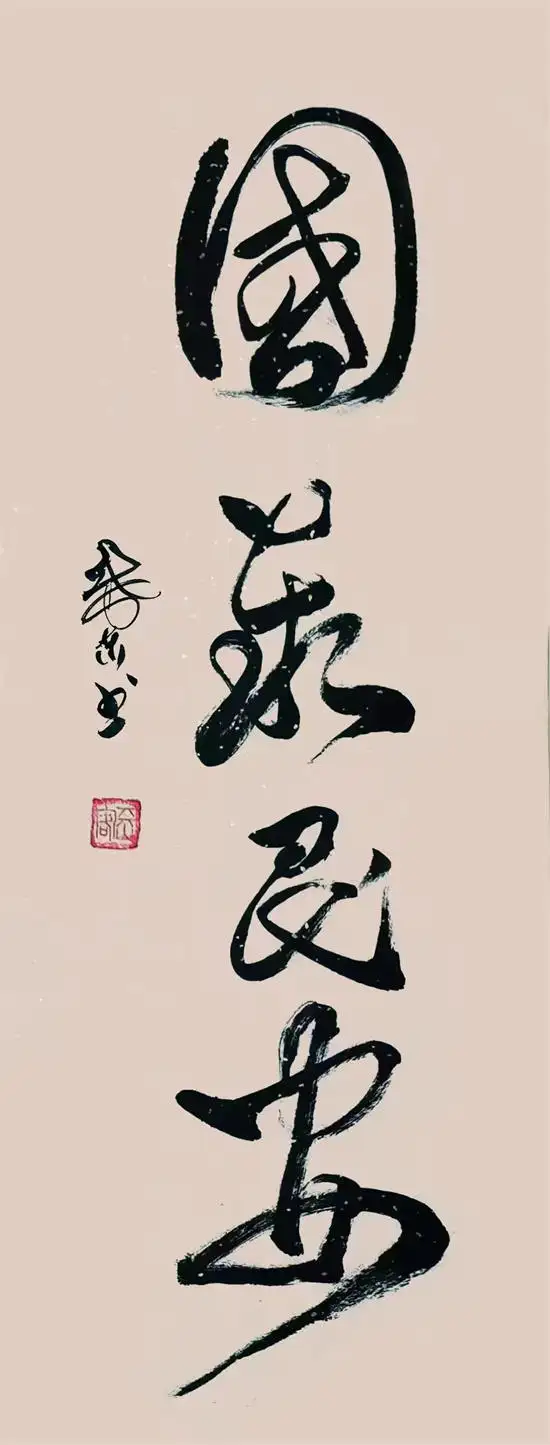 國泰民安
书